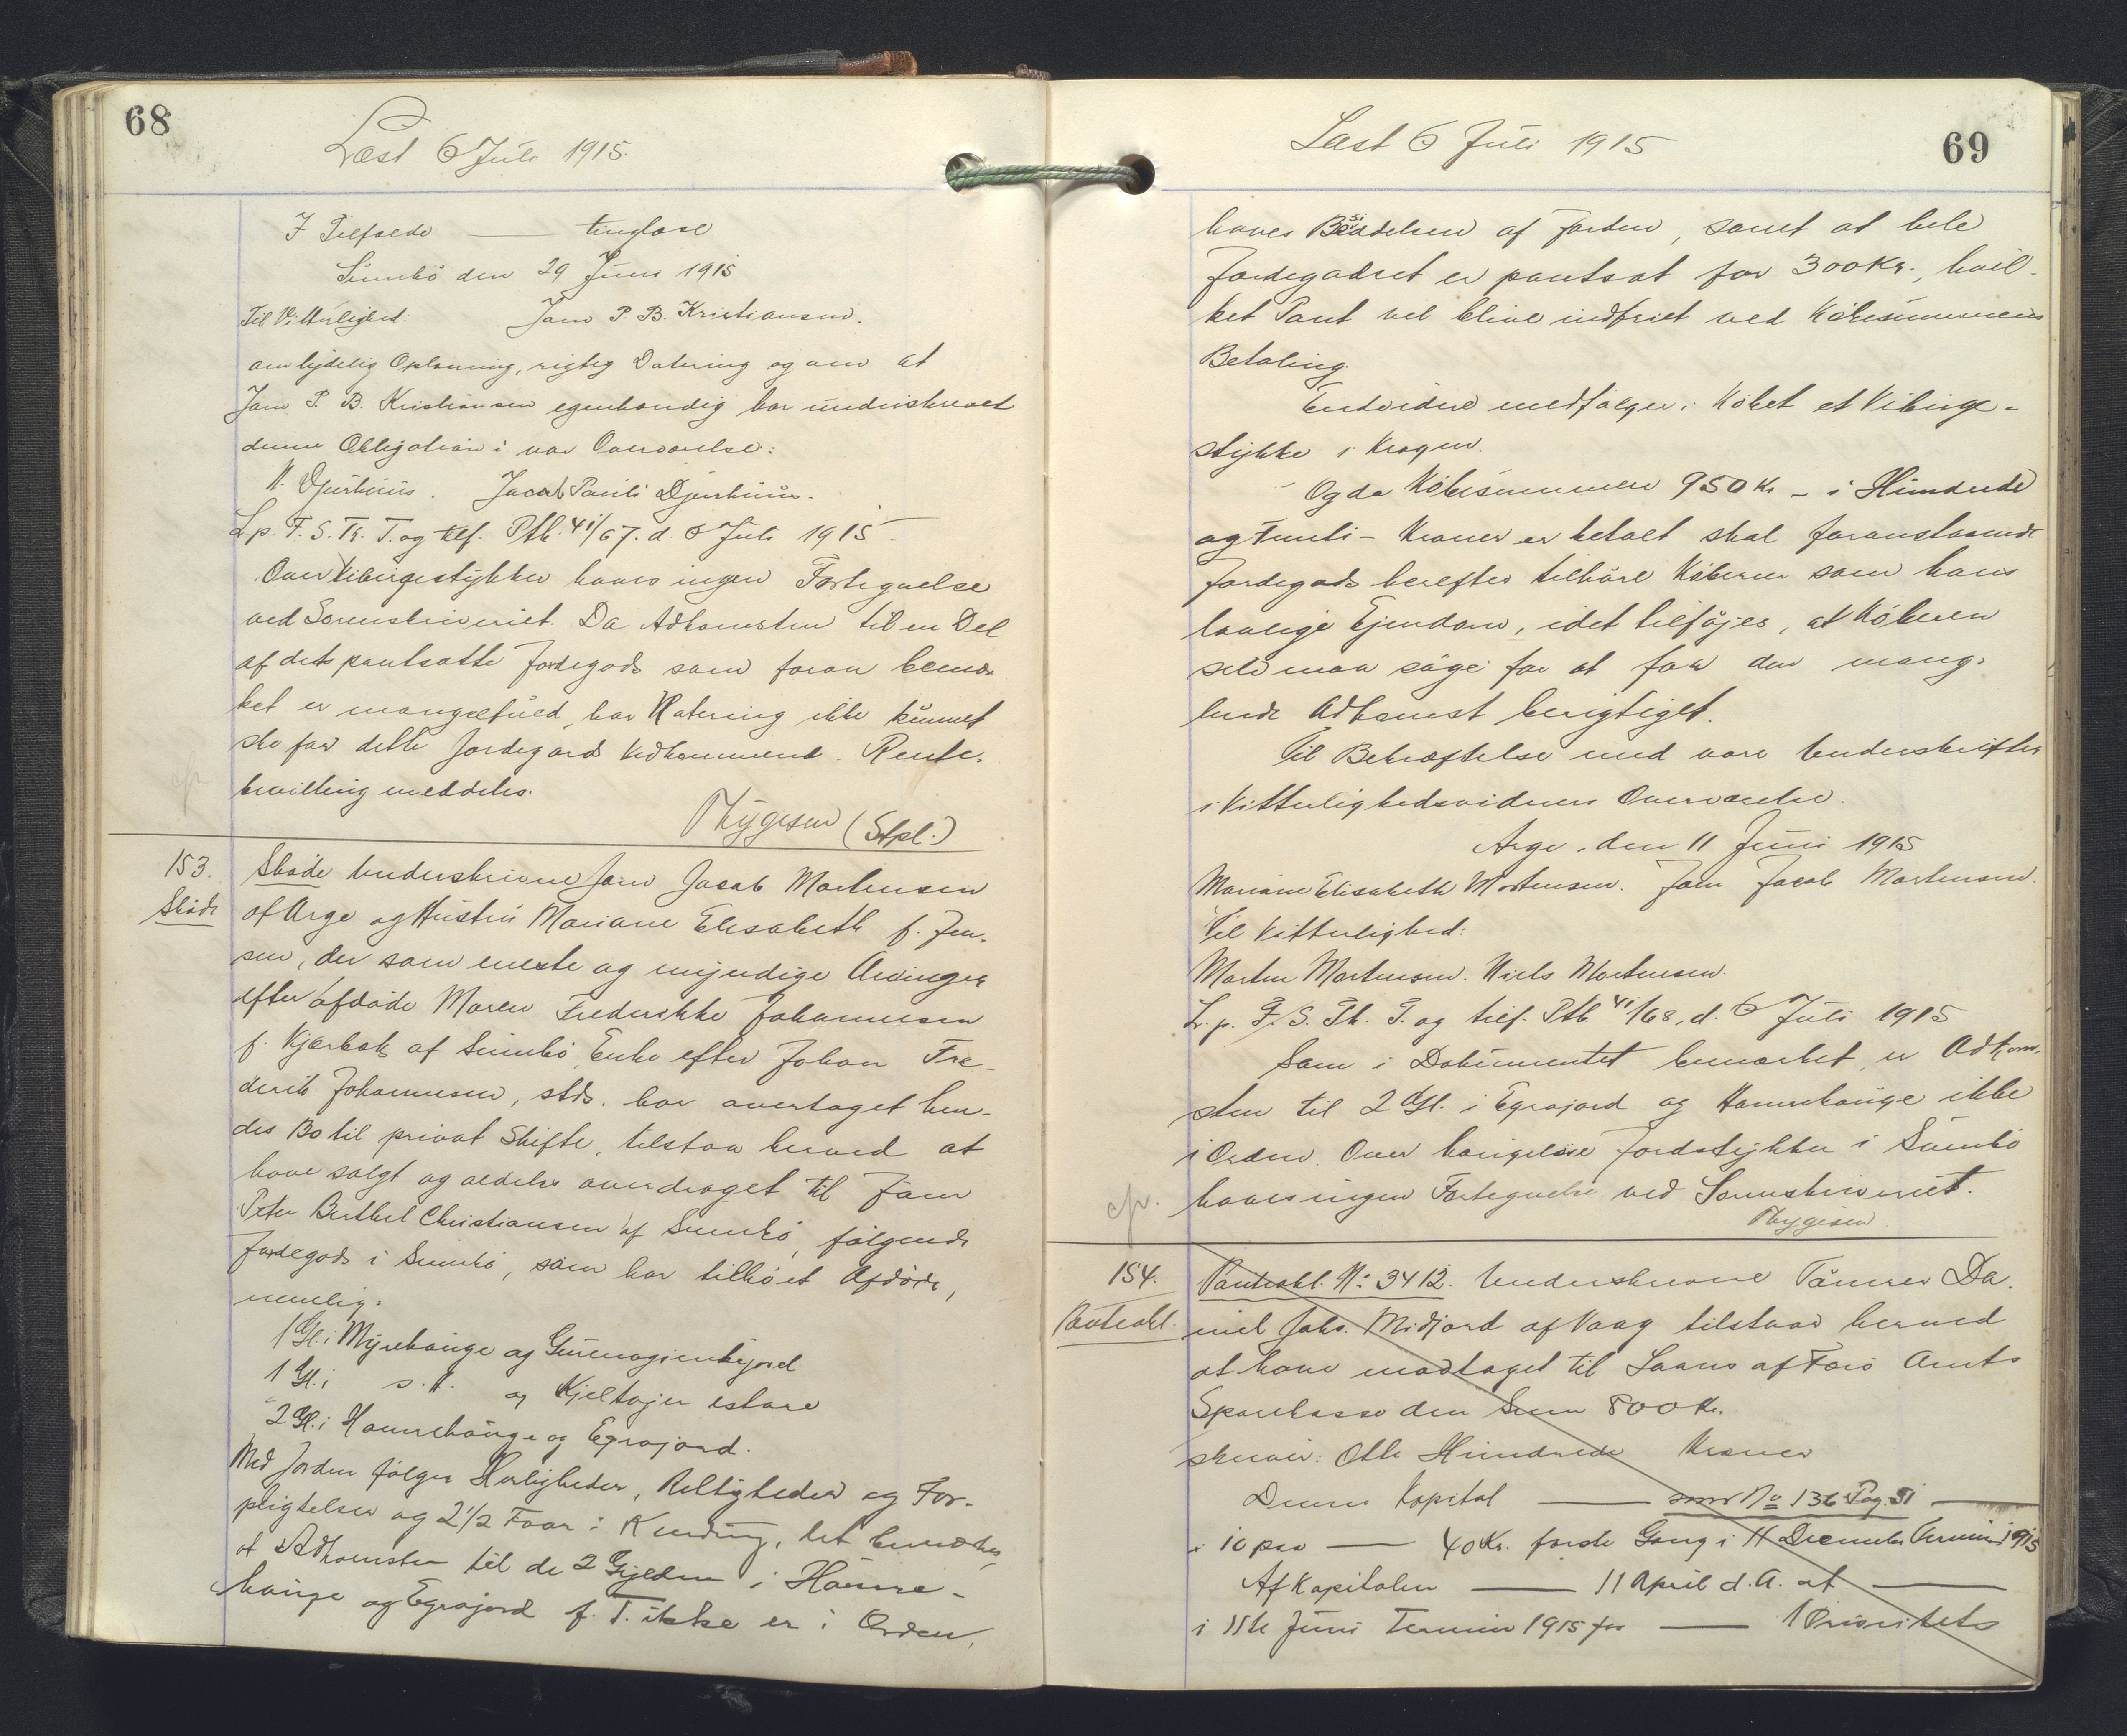 68
Læst 6 Juli 1915.
I Tilfælde — tinglæse
Sumbö den 29 Juni 1915
Til Vitterlighed: Joen P. B. Kristiansen.
om lydelig Oplæsning, rigtig Datering og om at
Joen P. B. Kristiansen egenhændig har underskrevet
denne Obligation i vor Overværelse:
N. Djurhuus. Jacob Pauli Djurhuus.
L. p. F. S. Th. T. og tilf. Ptb. 41/67. d. 6 Juli 1915
Over Vibirgestykker haves ingen Fortegnelse
ved Sorenskriveriet. Da Adkomsten til en Del
af det pantsatte Jordegods som foran bemær
ket er mangelfuld, har Notering ikke kunnet
ske for dette Jordegods Vedkommende. Rente-
bevilling meddeles.
cfr.
Thygesen (Stpl.)
153.
Skøde
Skøde Underskrevne Joen Jacob Mortensen
af Arge og Hustru Mariane Elisabeth f. Jen-
sen, der som eneste og myndige Arvinger
efter afdøde Maren Frederikke Johannesen
f. Kjærbæk af Sumbö, Enke efter Johan Fre-
derik Johannesen, stds. har overtaget hen-
des Bo til privat Skifte, tilstaa herved at
have solgt og aldeles overdraget til Joen
Peter Berthel Christiansen af Sumbö, følgende
Jordegods i Sumbö, som har tilhört Afdøde,
nemlig:
1 Gl. i Myrehauge og Gurenagienbejord
1 Gl. i s. H. og Kjeltajer estare
2 Gl. i Hamrehauge og Egrajord.
Med Jorden følger Herligheder, Rettigheder og For-
pligtelser og 2 1/2 Faar i Kunding, let bemærkes,
at Adkomsten til de 2 Gylden i Hamre-
hauge og Egrajord f. T. ikke er i Orden,
69
Læst 6 Juli 1915
haves Besiddelsen af Jorden, samt at hele
Jordegodset er pantsat for 300 Kr., hvil-
ket Pant vil blive indfriet ved Købesummens
Betaling.
Endvidere medfølger i Købet et Vibirge-
stykke i Kragen.
Og da Købesummen 950 Kr - ni Hundrede
og Femti - Kroner er betalt skal foranstaaende
Jordegods herefter tilhøre Køberen som hans
lovlige Ejendom, idet tilføjes, at Køberen
selv maa sörge for at faa den mang-
lende Adkomst berigtiget.
Til Bekræftelse med vore Underskrifter
i Vitterlighedsvidners Overværelse.
Arge, den 11 Juni 1915
Mariane Elisabeth Mortensen. Joen Jacob Mortensen.
Til Vitterlighed:
Morten Mortensen. Niels Mortensen.
L. p. F. S. Th. T. og tilf. Ptb. 41/68, d. 6 Juli 1915
Som i Dokumentet bemærket, er Adkom-
sten til 2 Gl. i Egrajord og Hamrehauge ikke
i Orden. Over haugelse Jordstykker i Sumbö
haves ingen Fortegnelse ved Sorenskriveriet.
cfr.
Thygesen
154.
Panteobl.
Panteobl. No 3412. Underskrevne Tømrer Da-
niel Johs. Midjord af Vaag tilstaar herved
at have modtaget til Laans af Færö Amts
Sparekasse den Sum 800 Kr.
skriver: Otte Hundrede Kroner
Denne Kapital — som No 136 Pag. 51 —
i 10 paa — 40 Kr. første Gang i 11 December Termin 1915
Af Kapitalen — 11 April d. A. at —
i 11te Juni Termin 1915 for — 1 Prioritets